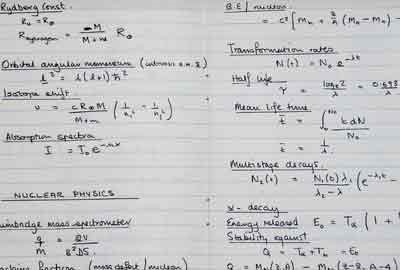 Rydberg Const.
R₀ = R∞
R_hydrogen = M / (M + m) R∞
Orbital angular momentum
l² = l(l+1) ħ²
Isotope shift.
ν = cR∞M / (M+m) (1/n₁² - 1/n₂²)
Absorption spectra
I = I₀ e
NUCLEAR PHYSICS
mass spectrometer
q/m = 2V / B²DS
fraction (mass defect/nucleon)
B.E / nucleon
= c² [ Mₙ + (Mₙ - Mₙ) -
Transformation rates
N(t) = N₀ e^-λt
Half life
τ = logₑ2 / λ = 0.693 / λ
Mean life time
t̄ = ∫ t dN / N₀
t̄ = 1/λ
Multistage decays.
N₂(t) = N₁(0) λ₁ / (λ₂ - λ) ( e^-λ₁t -
α - decay
Energy released E₀ = Tα ( 1 +
Stability against
Q = Tα + T = E₀